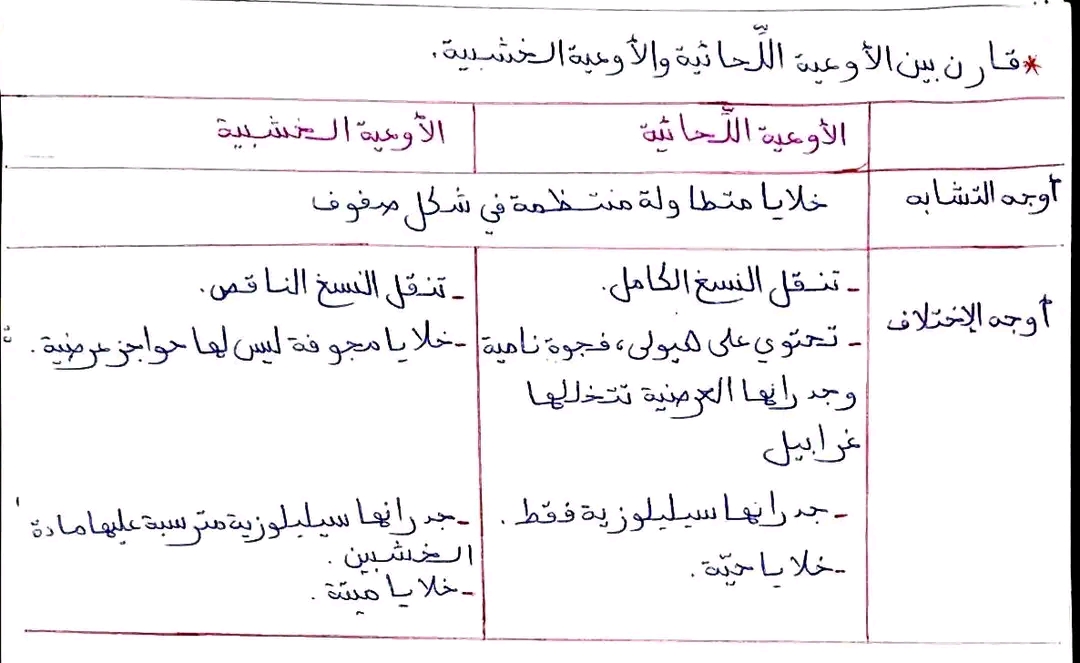 *قارن بين الأوعية اللّحائية والأوعية الخشبية.
الأوعية اللّحائية
الأوعية الخشبية
أوجه التشابه
خلايا متطاولة منتظمة في شكل صفوف
أوجه الإختلاف
- تنقل النسغ الكامل.
- تحتوي على هيولى، فجوة نامية
وجدرانها العرضية تتخللها
غرابيل
- جدرانها سيليلوزية فقط.
- خلايا حيّة.
- تنقل النسغ الناقص.
- خلايا مجوفة ليس لها حواجز عرضية.
- جدرانها سيليلوزية مترسبة عليها مادة
الخشبين.
- خلايا ميتة.